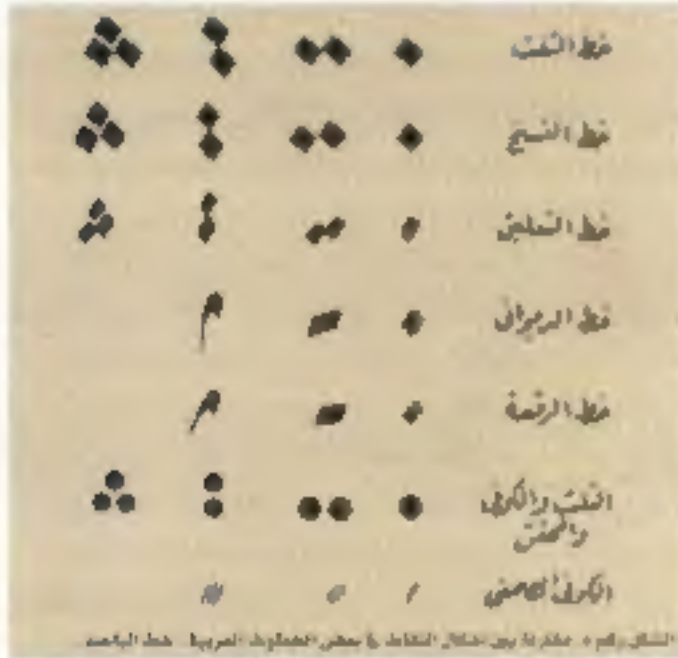 خط الثلث
خط النسخ
خط التعليق
خط الديواني
خط الرقعة
الثلث والكوفي
والمحقق
الكوفي
الشكل رقم مقارنة بين أشكال النقاط في بعض الخطوط العربية خط